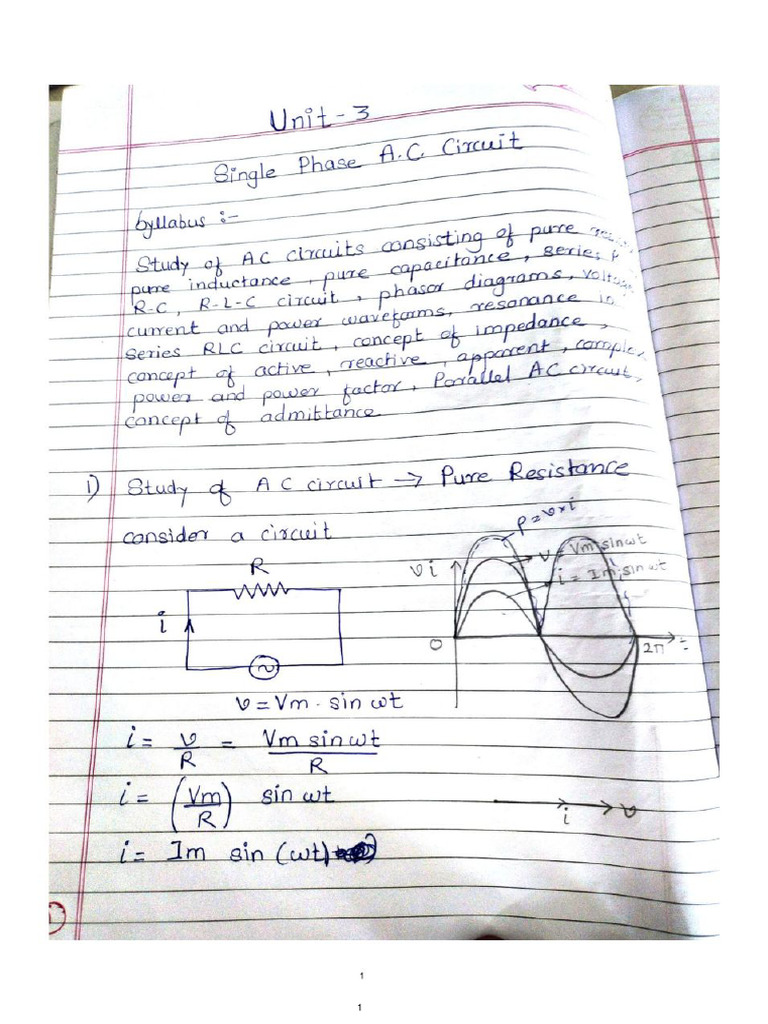 Unit-3
Single Phase A.C. Circuit
Syllabus :-
Study of AC circuits consisting of pure
pure inductance, pure capacitance, series
R-C, R-L-C circuit, phasor diagrams, voltage
current and power waveforms, resonance in
series RLC circuit, concept of impedance,
concept of active, reactive, apparent, comple
power and power factor, Parallel AC circuit,
concept of admittance
1) Study of AC circuit → Pure Resistance
consider a circuit
P = v×i
v = Vm sin wt
i = Im sin wt
v i
0
2π
R
i
v = Vm . sin wt
i = v/R = Vm sin wt / R
i = (Vm/R) sin wt
i v
i = Im sin (wt)
1
1